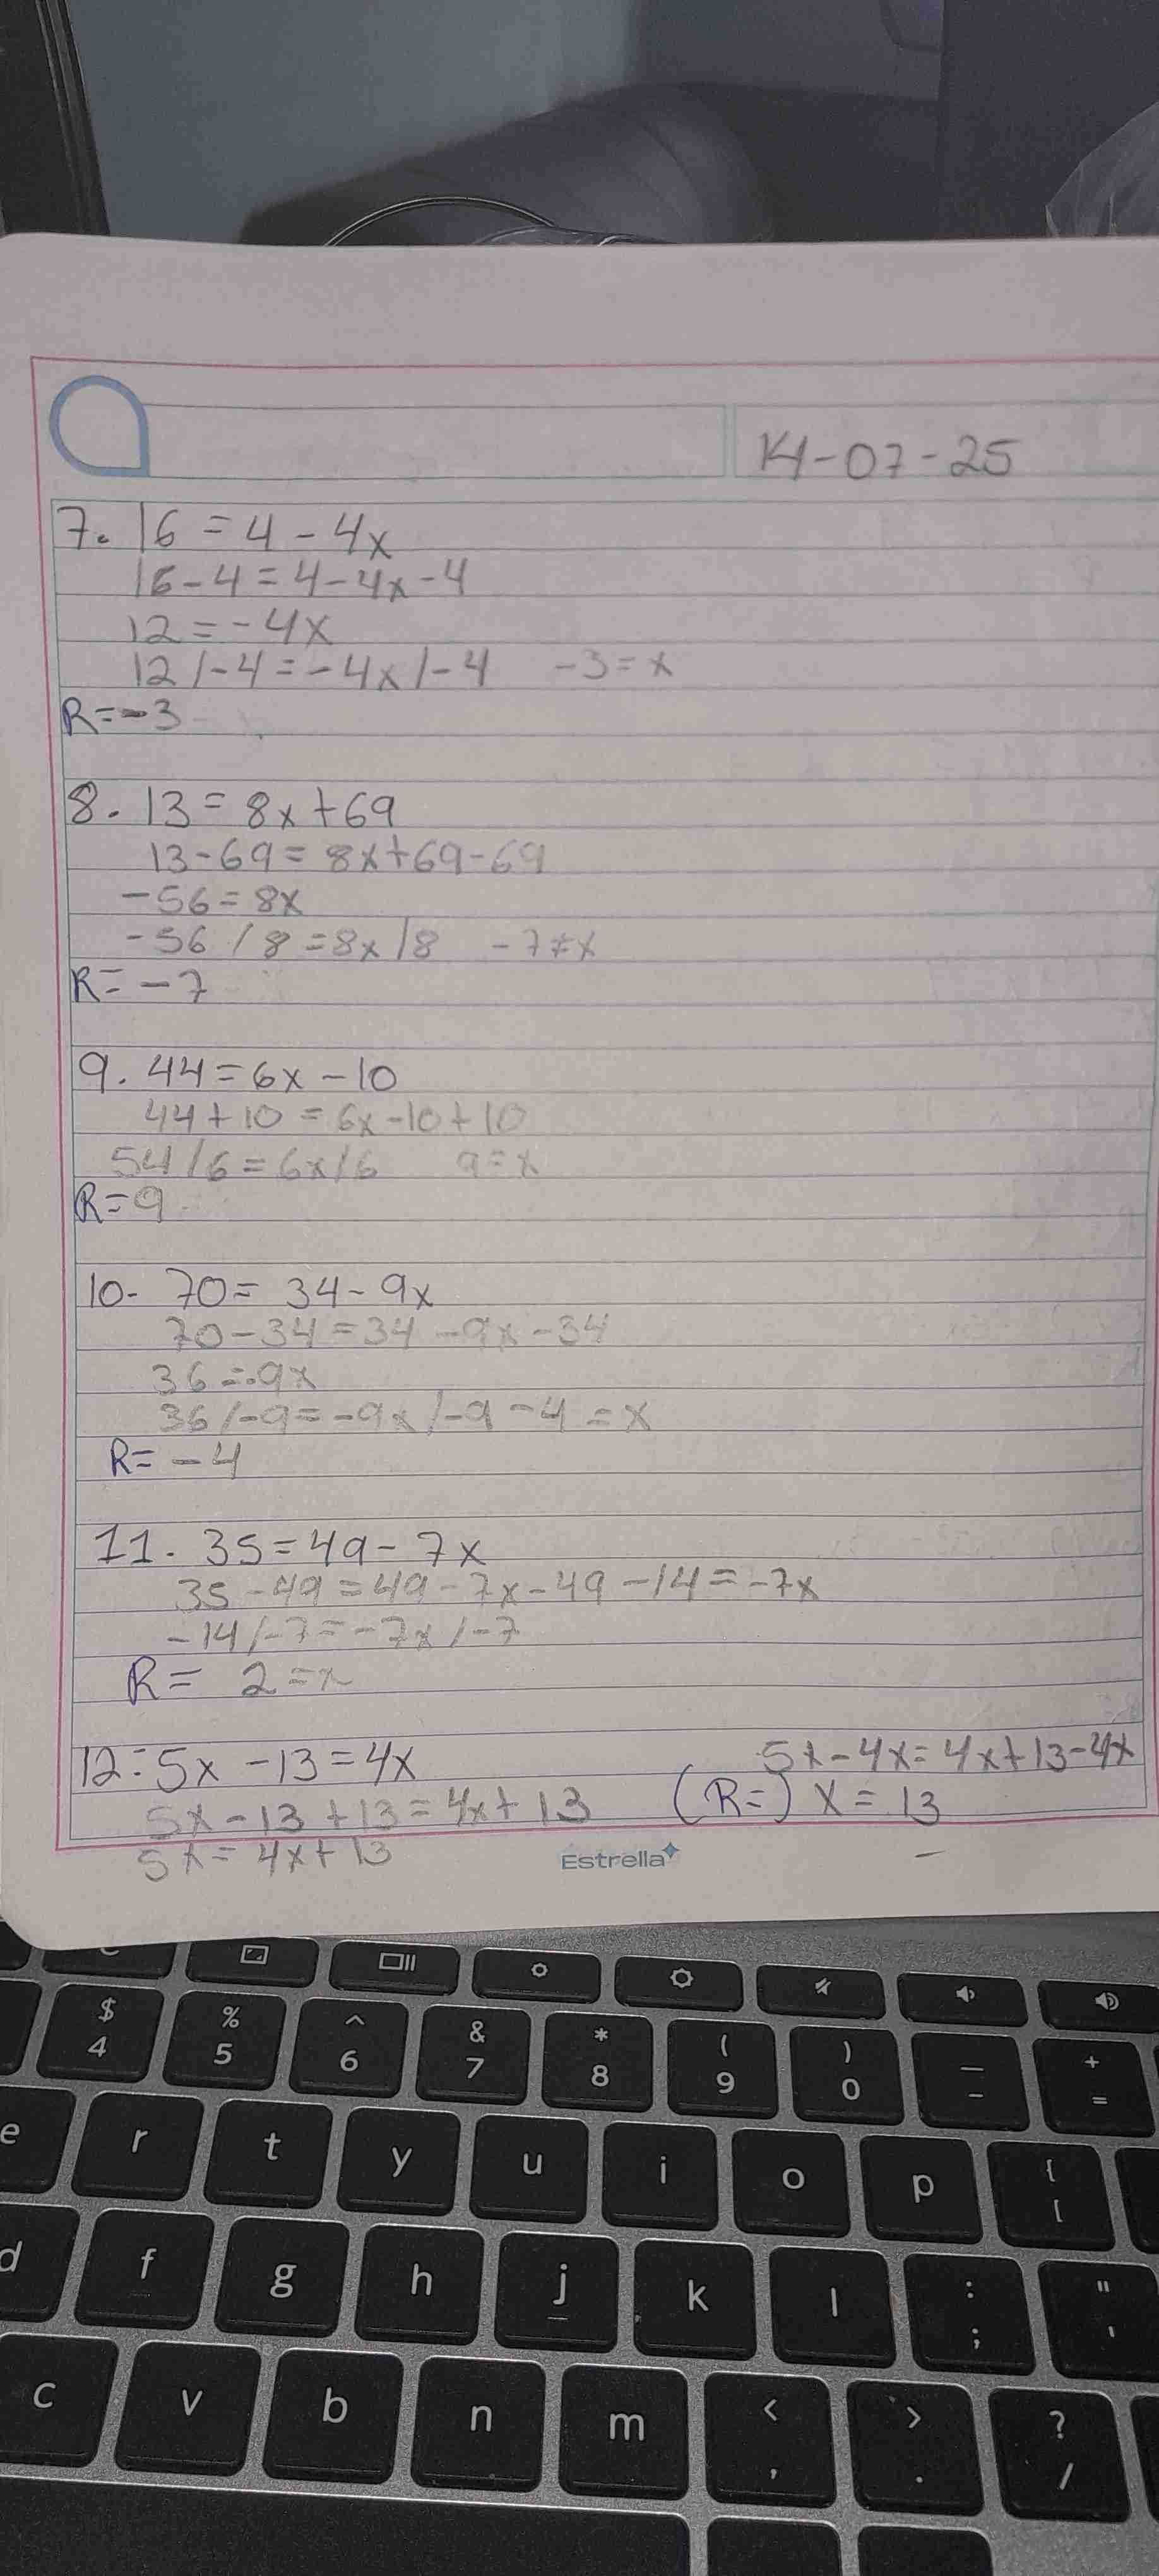 14-07-25
7. 16 = 4 - 4x
16-4=4-4x-4
12=-4x
12/-4=-4x/-4 -3=x
R=-3
8. 13 = 8x+69
13-69=8x+69-69
-56=8x
-56/8=8x/8 -7=x
R=-7
9. 44=6x-10
44+10=6x-10+10
54/6=6x/6 9=x
R=9
10- 70=34-9x
70-34=34-9x-34
36=-9x
36/-9=-9x/-9 -4=x
R=-4
11. 35=49-7x
35-49=49-7x-49 -14=-7x
-14/-7=-7x/-7
R= 2=x
12- 5x-13=4x
5x-13+13=4x+13
5x=4x+13
5x-4x=4x+13-4x
(R=) x=13
Estrella
$ % ^ & * ( ) _ +
4 5 6 7 8 9 0 - =
e r t y u i o p { [
d f g h j k l : ; " '
c v b n m < , > . ? /